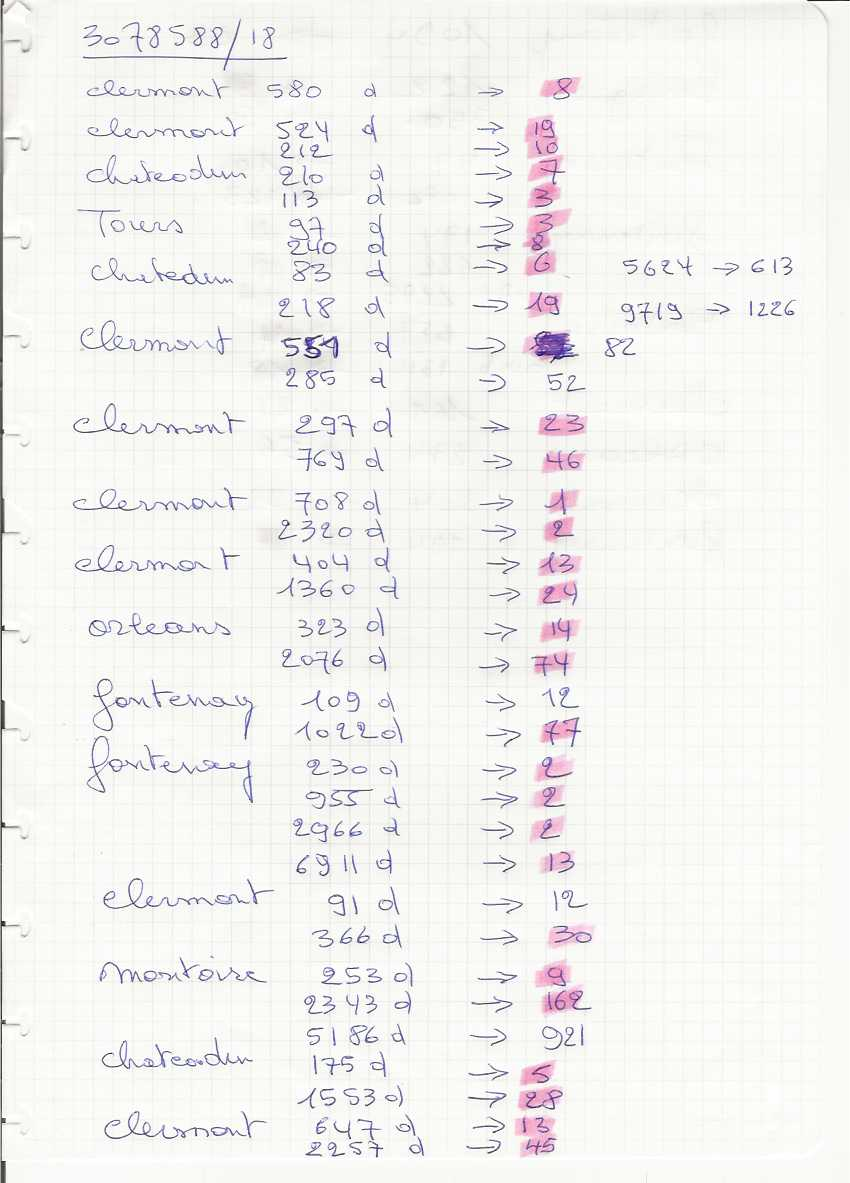 3078588/18
clermont 580 d → 8
clermont 524 d → 19
212 → 10
chateodun 210 d → 7
113 d → 3
Tours 97 d → 3
240 d → 8
chatedun 83 d → 6 5624 → 613
218 d → 19 9719 → 1226
clermont 551 d → 82
285 d → 52
clermont 297 d → 23
769 d → 46
clermont 708 d → 1
2320 d → 2
clermont 404 d → 13
1360 d → 24
orleans 323 d → 14
2076 d → 74
fontenay 109 d → 12
1022 d → 77
fontenay 230 d → 2
955 d → 2
2966 d → 2
6911 d → 13
clermont 91 d → 12
366 d → 30
montoire 253 d → 9
2343 d → 162
5186 d → 921
chateodun 175 d → 5
1553 d → 28
clermont 647 d → 13
2257 d → 45